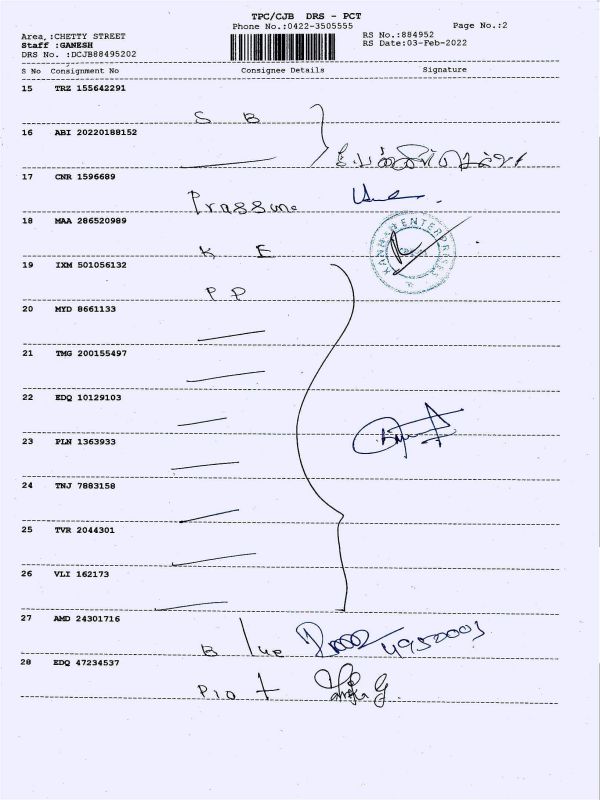 TPC/CJB DRS - PCT
Phone No.:0422-3505555
Page No.:2
Area,:CHETTY STREET
Staff :GANESH
DRS No. :DCJB88495202
RS No.:884952
RS Date:03-Feb-2022
S No Consignment No Consignee Details Signature
15 TRZ 155642291
S B
16 ABI 20220188152
17 CNR 1596689
18 MAA 286520989
KANNAN ENTERPRISES
K E
19 IXM 501056132
P P
20 MYD 8661133
21 TMG 200155497
22 EDQ 10129103
23 PLN 1363933
24 TNJ 7883158
25 TVR 2044301
26 VLI 162173
27 AMD 24301716
B lue
28 EDQ 47234537